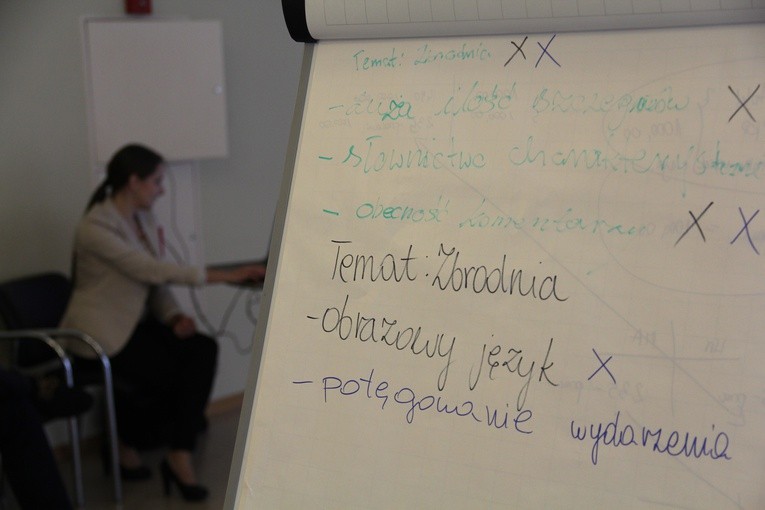 Temat: Zbrodnia X X
- duża ilość szczegółów X
- słownictwo charakterystyczne
- obecność komentarza X X
Temat: Zbrodnia
- obrazowy język X
- potęgowanie wydarzenia